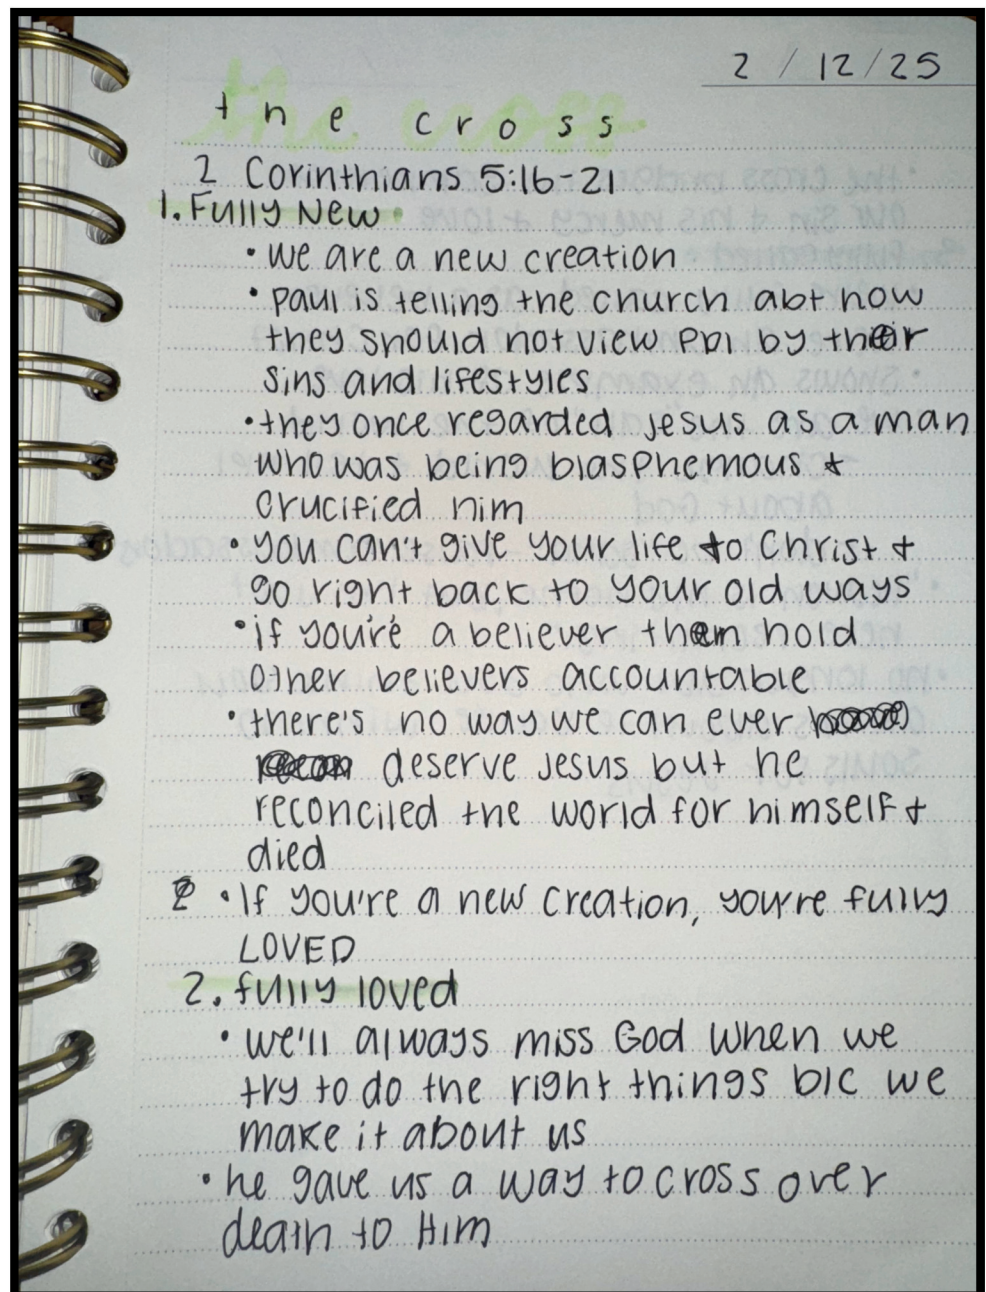 2 / 12 / 25
the cross
2 Corinthians 5:16-21
1. Fully New
• we are a new creation
• paul is telling the church abt how
they should not view ppl by their
sins and lifestyles
• they once regarded jesus as a man
who was being blasphemous &
crucified him
• you can't give your life to Christ +
go right back to your old ways
• if you're a believer then hold
other believers accountable
• there's no way we can ever
deserve Jesus but he
reconciled the world for himself +
died
• If you're a new creation, you're fully
LOVED
2. fully loved
• we'll always miss God when we
try to do the right things b/c we
make it about us
• he gave us a way to cross over
death to Him